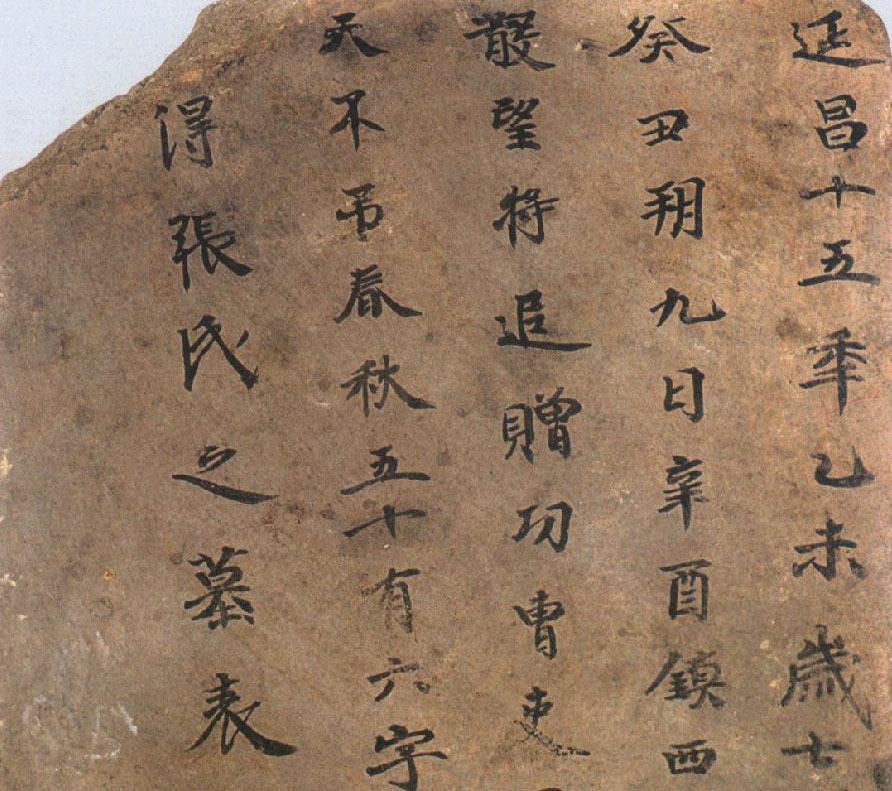 延昌十五秊乙未歲七
癸丑朔九日辛酉鎮西
散望将追贈功曹吏
天不吊春秋五十有六字
得張氏之墓表